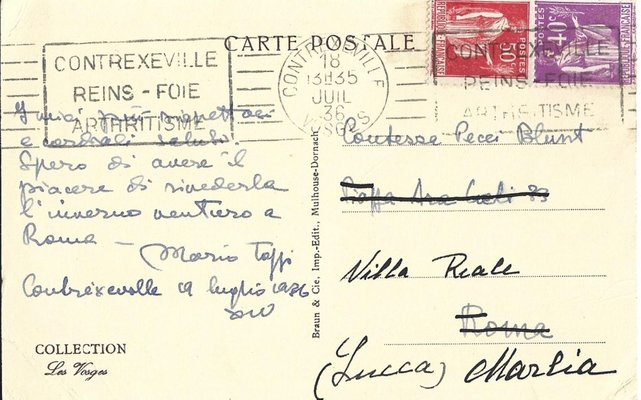 CARTE POSTALE
CONTREXEVILLE
REINS - FOIE
ARTHRITISME
CONTREXEVILLE
18
13H35
JUIL
36
VOSGES
CONTREXEVILLE
REINS - FOIE
ARTHRITISME
RÉPUBLIQUE FRANÇAISE
POSTES
50c
POSTES
I miei più rispettosi
e cordiali saluti.
Spero di avere il
piacere di rivederla
l'inverno venturo a
Roma —
Mario
Contrexeville 19 luglio 1936
COLLECTION
Les Vosges
Braun & Cie, Imp.-Edit., Mulhouse-Dornach
Contesse Pecci Blunt
Ara Coeli
Villa Reale
Roma
(Lucca) Marlia